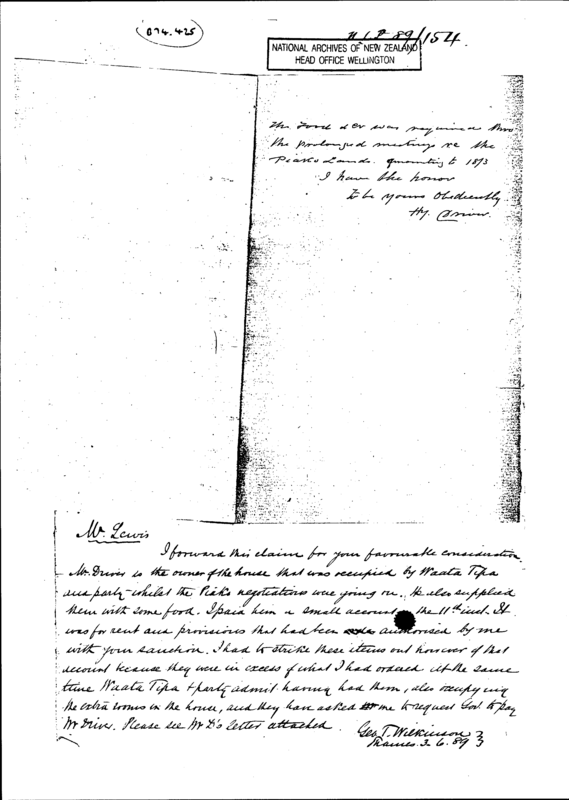 074.425
N L P 89/154
NATIONAL ARCHIVES OF NEW ZEALAND
HEAD OFFICE WELLINGTON
The Food &c was required
the prolonged meetings re the
Piako Lands. to 1873
I have the honor
to be yours Obediently
Hy. Driver.
Mr. Lewis
I forward this claim for your favourable consideration.
Mr. Driver is the owner of the house that was occupied by Waata Tipa
and party whilst the Piako negotiations were going on. He also supplied
them with some food. I paid him a small account the 11th inst. It
was for rent and provisions that had been authorised by me
with your sanction. I had to strike these items out however of that
account because they were in excess of what I had ordered at the same
time Waata Tipa & party admit having had them, also occupying
the extra rooms in the house, and they have asked me to request Govt. to pay
Mr Driver. Please see Mr D's letter attached.
Geo. T. Wilkinson
Thames 3.6.89